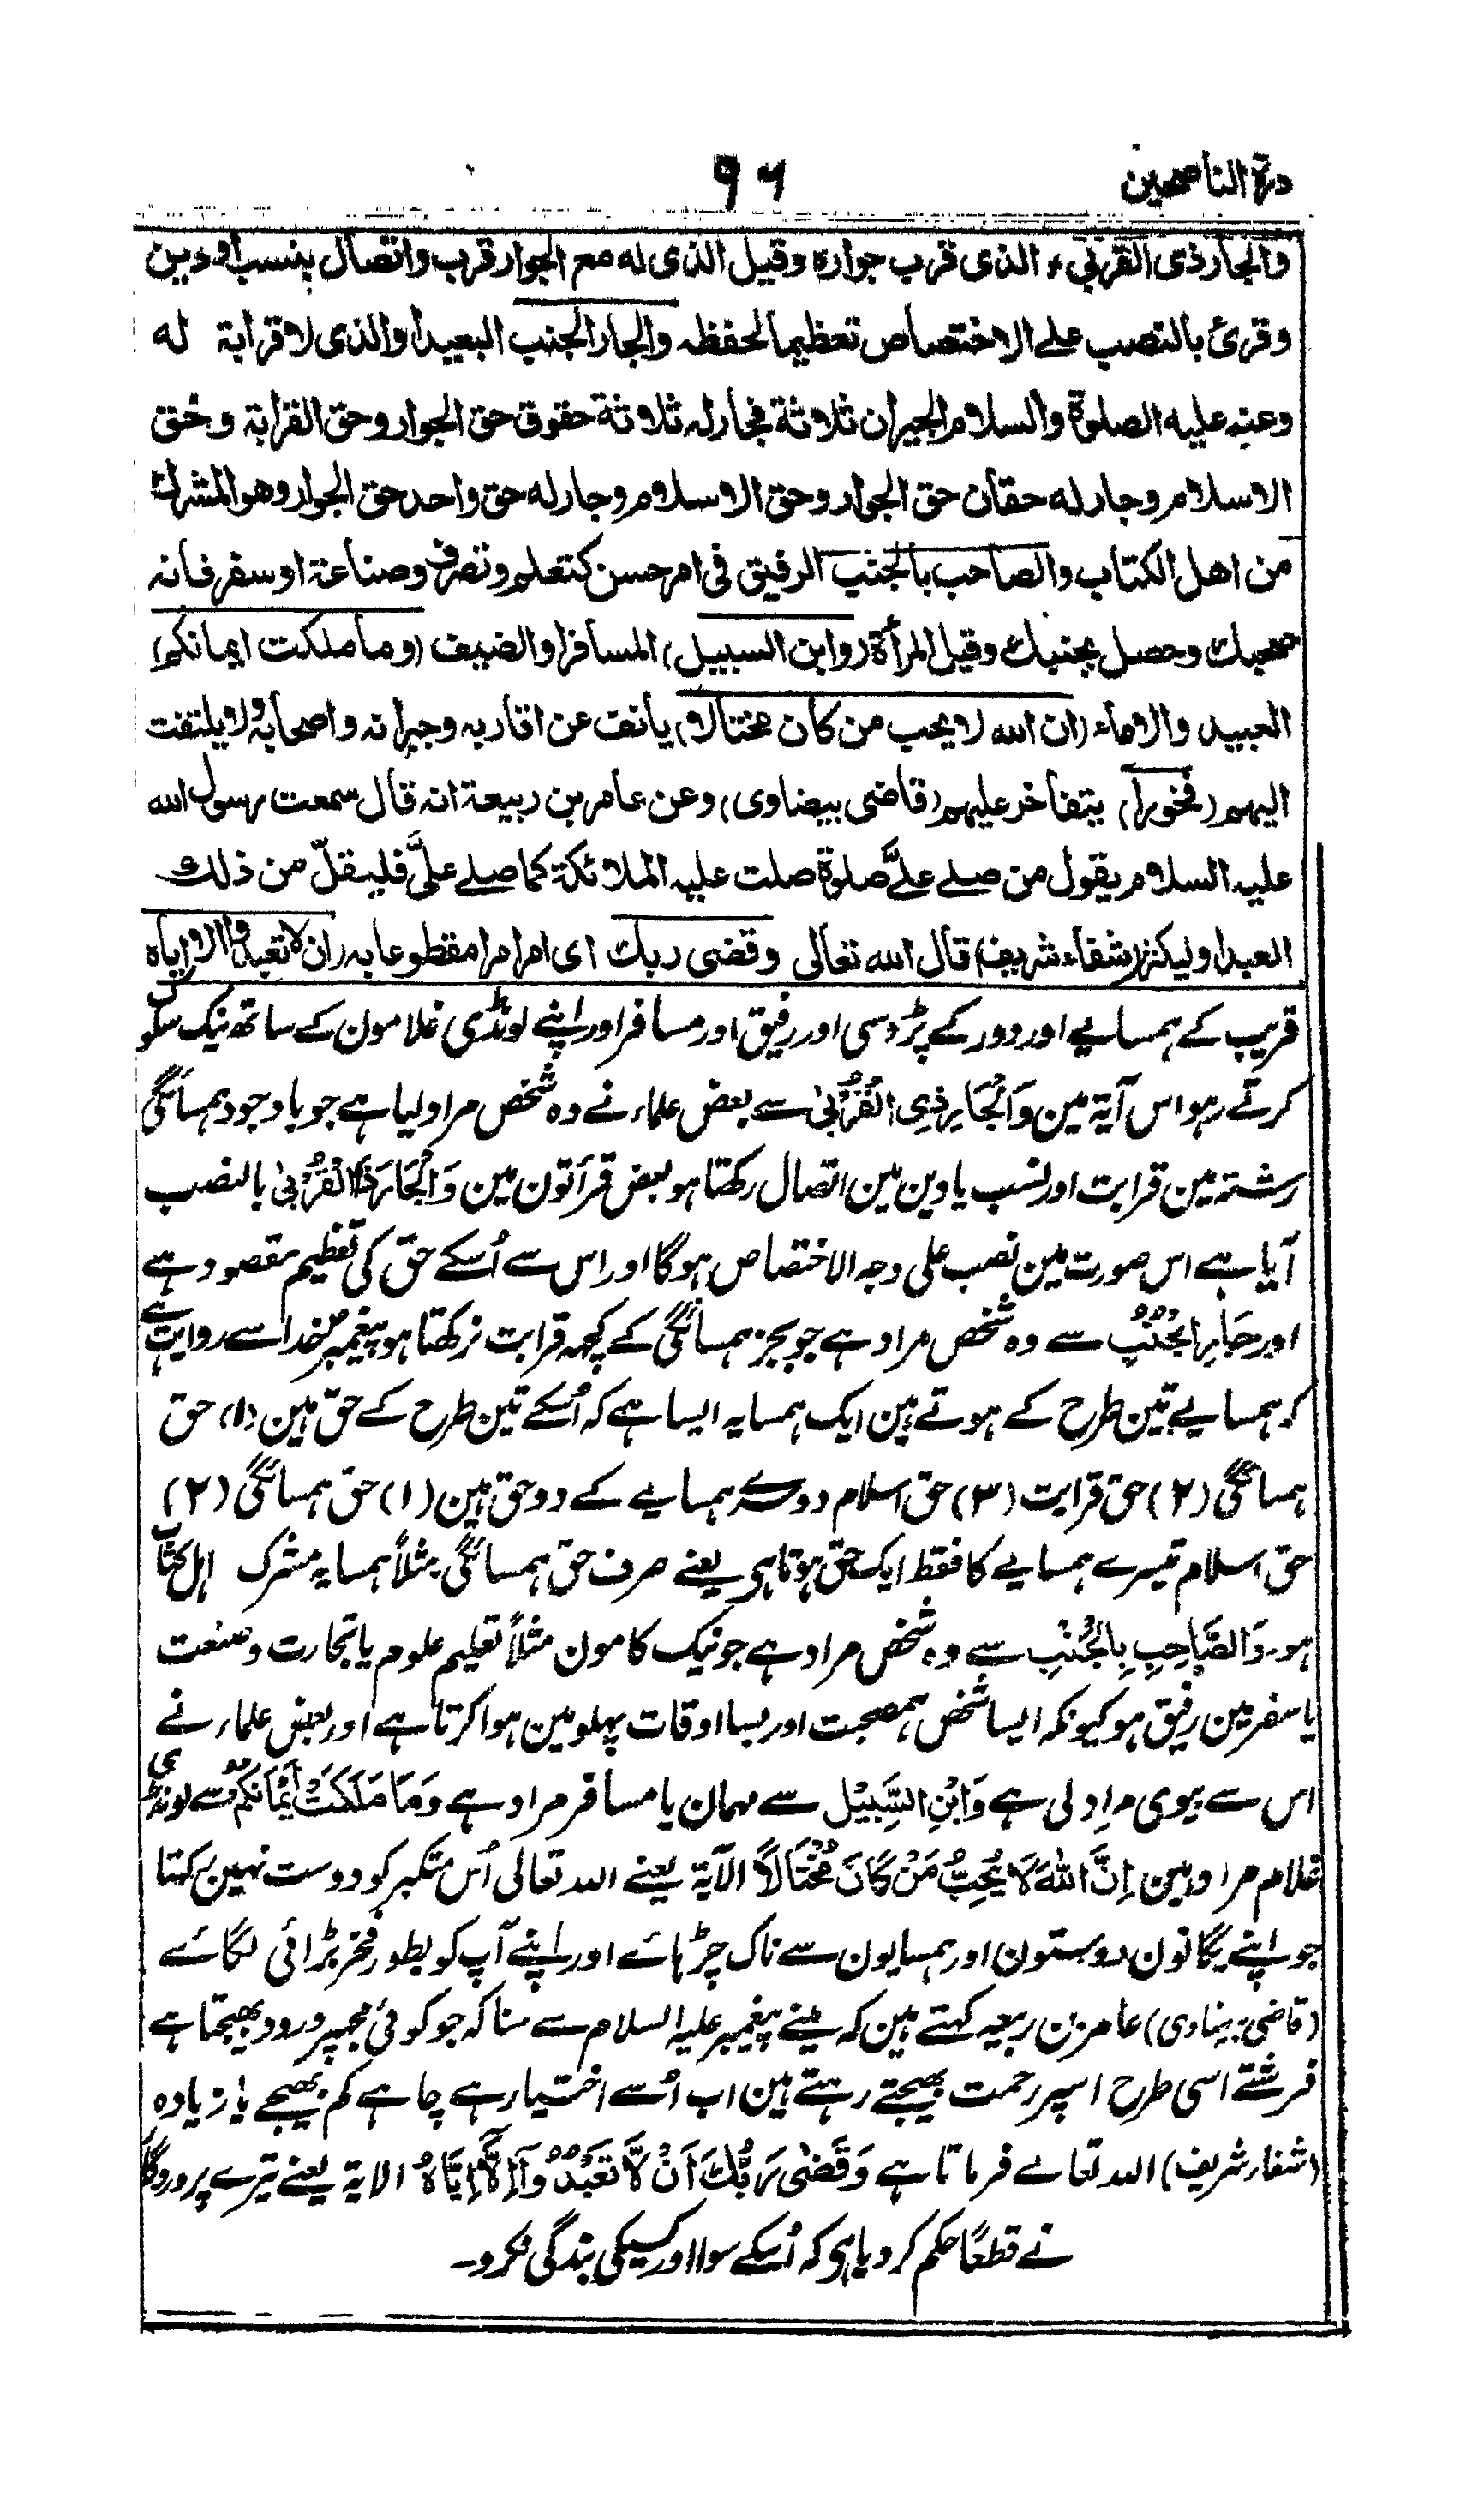 درة الناصحین
۹۶
والجار ذی القربیٰ ء الذی قرب جوارہ وقیل الذی لہ مع الجوار قرب واتصال بنسب اودین
وقرئ بالنصب علے الاختصاص تعظیما لحفظہ والجار الجنب البعید او الذی لا قرابة لہ
وعنہ علیہ الصلوة والسلام الجیران ثلاثة فجار لہ ثلاثة حقوق حق الجوار وحق القرابة وحق
الاسلام وجار لہ حقان حق الجوار وحق الاسلام وجار لہ حق واحد حق الجوار وھو المشرک
من اھل الکتاب والصاحب بالجنب الرفیق فی امر حسن کتعلم وتصرف وصناعة او سفر فانہ
صحبک وحصل بجنبک وقیل المرأة (وابن السبیل) المسافر او الضیف (وما ملکت ایمانکم)
العبید والاماء (ان اللہ لا یحب من کان مختالا) یانف عن اقاربہ وجیرانہ واصحابہ ولا یلتفت
الیھم (فخورا) یتفاخر علیھم (قاضی بیضاوی) وعن عامر بن ربیعة انہ قال سمعت رسول اللہ
علیہ السلام یقول من صلے علیّ صلوة صلت علیہ الملائکة کما صلے علیّ فلیقلّ من ذلک
العبد او لیکثر (شفاء شریف) قال اللہ تعالی وقضی ربک ای امر امرا مقطوعا بہ (ان لا تعبدوا الا ایاہ
قریب کے ہمسایے اور دور کے پڑوسی اور رفیق اور مسافر اور اپنے لونڈی غلامون کے ساتھ نیک سلوک
کرتے رہو اس آیۃ مین وَالْجَارِ ذِی الْقُرْبیٰ سے بعض علماء نے وہ شخص مراد لیا ہے جو باوجود ہمسائگی
رشتہ مین قرابت اور نسب یا دین مین اتصال رکھتا ہو بعض قرأتون مین وَالْجَارَ ذَا الْقُرْبیٰ بالنصب
آیا ہے اس صورت مین نصب علی وجہ الاختصاص ہوگا اور اس سے اُسکے حق کی تعظیم مقصود ہے
اور جَارِ الْجُنُبِ سے وہ شخص مراد ہے جو بجز ہمسائگی کے کچھ قرابت نرکھتا ہو پیغمبر خدا سے روایت ہے
کہ ہمسایے تین طرح کے ہوتے ہین ایک ہمسایہ ایسا ہے کہ اُسکے تین طرح کے حق ہین (۱) حق
ہمسائگی (۲) حق قرابت (۳) حق اسلام دوسرے ہمسایے کے دو حق ہین (۱) حق ہمسائگی (۲)
حق اسلام تیسرے ہمسایے کا فقط ایک حق ہوتا ہی یعنے صرف حق ہمسائگی مثلاً ہمسایہ مشرک اہل کتاب
ہو۔ وَالصَّاحِبِ بِالْجَنْبِ سے وہ شخص مراد ہے جو نیک کامون مثلاً تعلیم علوم یا تجارت و صنعت
یا سفر مین رفیق ہو کیونکہ ایسا شخص ہمصحبت اور بسا اوقات پہلو مین ہوا کرتا ہے اور بعض علماء نے
اس سے بیوی مراد لی ہے وَابْنِ السَّبِیْلِ سے مہمان یا مسافر مراد ہے وَمَا مَلَکَتْ اَیْمَانُکُمْ سے لونڈی
غلام مراد ہین اِنَّ اللہَ لَا یُحِبُّ مَنْ کَانَ مُخْتَالاً الآیۃ یعنے اللہ تعالی اُس متکبر کو دوست نہین رکھتا
جو اپنے یگانون دوستون اور ہمسایون سے ناک چڑہائے اور اپنے آپ کو بطور فخر بڑائی لگائے
(قاضی بیضاوی) عامر بن ربیعہ کہتے ہین کہ مینے پیغمبر علیہ السلام سے سنا کہ جو کوئی مجھپر درود بھیجتا ہے
فرشتے اسی طرح اسپر رحمت بھیجتے رہتے ہین اب اُسے اختیار ہے چاہے کم بھیجے یا زیادہ
(شفاء شریف) اللہ تعالے فرماتا ہے وَقَضیٰ رَبُّکَ اَنْ لَّا تَعْبُدُوْا اِلَّا اِیَّاہُ الایۃ یعنے تیرے پروردگار
نے قطعًا حکم کر دیا ہی کہ اُسکے سوا اور کسیکی بندگی نکرو۔